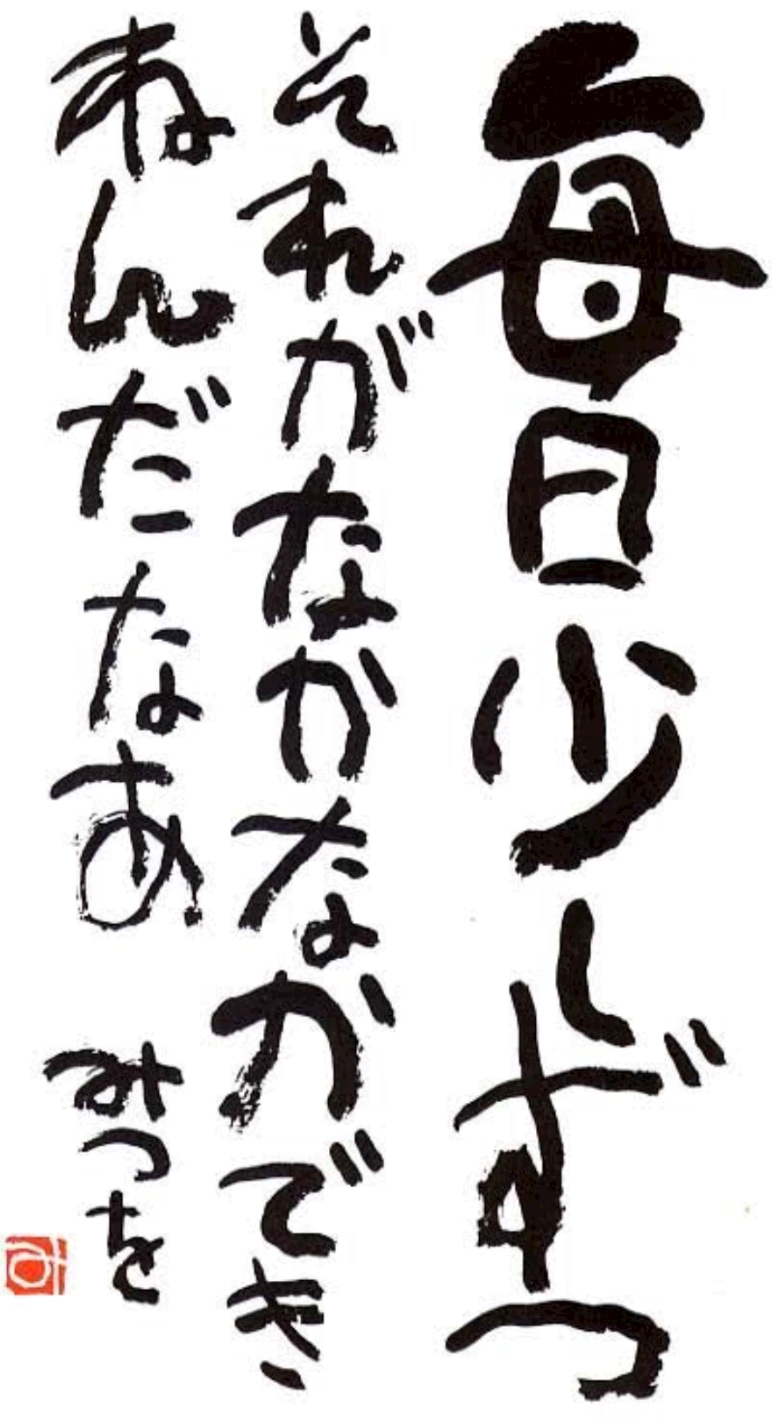 毎日少しずつ
それがなかなかでき
ねんだなあ
みつを
み